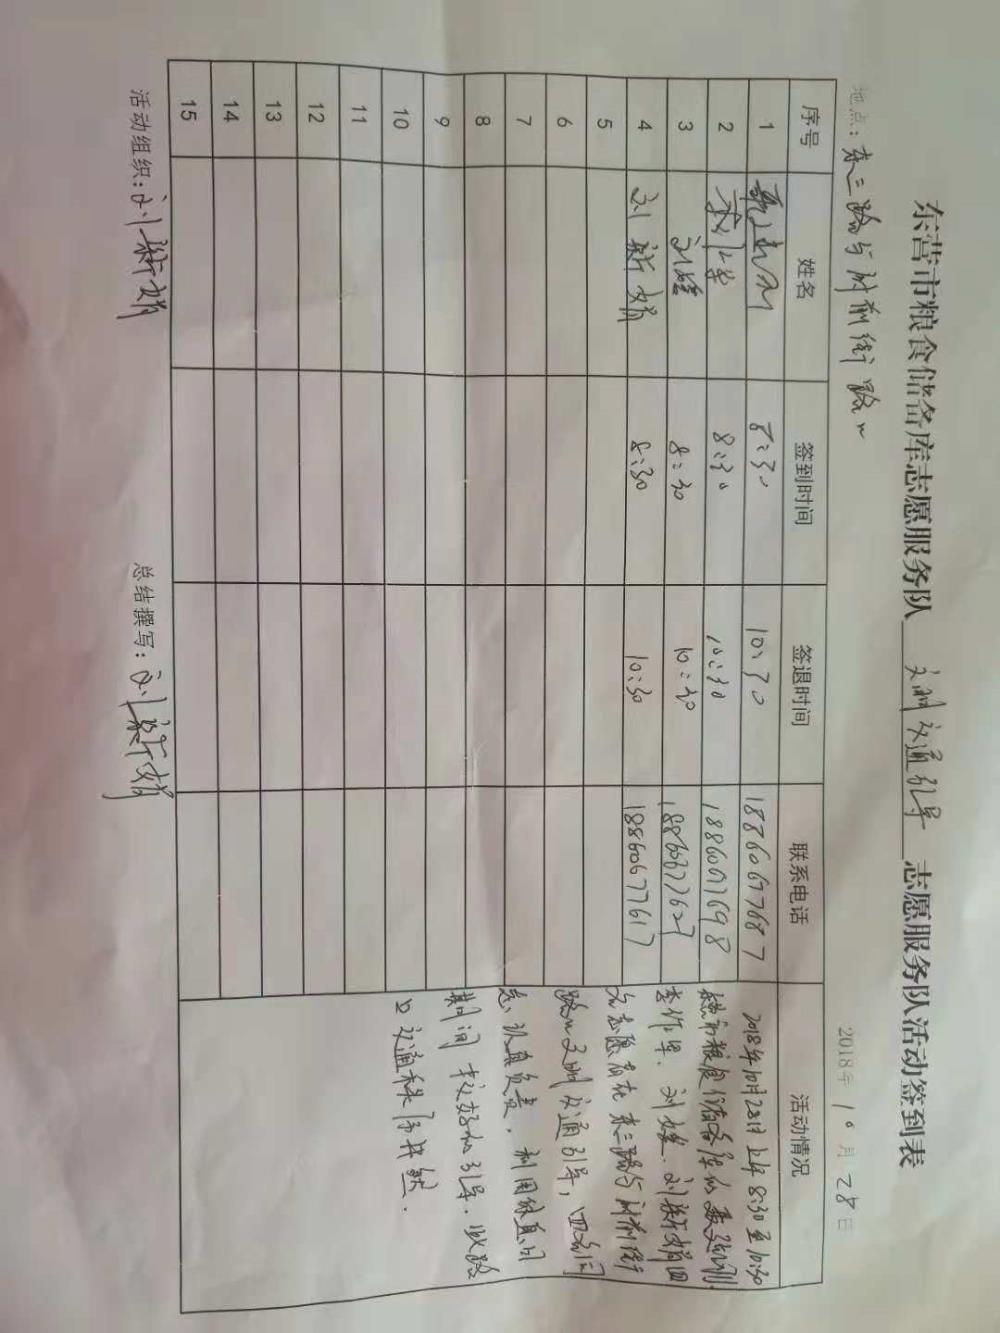 东营市粮食储备库志愿服务队 文明交通引导 志愿服务队活动签到表
地点：东三路与府前街路口 2018年10月28日
序号 姓名 签到时间 签退时间 联系电话 活动情况
1 8:30 10:30 18860677687
2 8:30 10:30 18860677698
3 刘 8:30 10:30 18860677627
4 刘新娟 8:30 10:30 18860677617
5
6
7
8
9
10
11
12
13
14
15
2018年10月28日上午8:30至10:30
市粮食储备库的
李作军、刘、刘新娟四
名志愿者在东三路与府前街
路口文明交通引导，四名同
志，认真负责，利用休息日
期间 引导，
口交通秩序井然.
活动组织：刘新娟 总结撰写：刘新娟